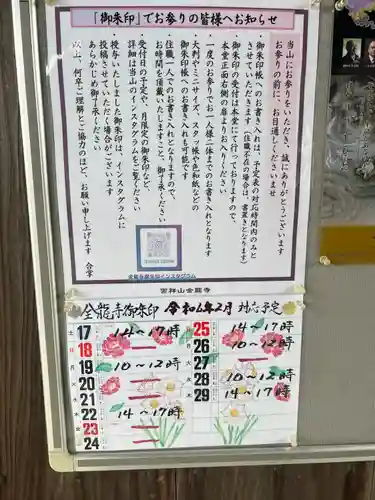 「御朱印」でお参りの皆様へお知らせ
当山にお参りをいただき、誠にありがとうございます
お参りの前に、お目通しくださいませ
・御朱印帳へのお書き入れは、予定表の対応時間内のみと
させていただきます（住職不在の場合は、書置きとなります）
御朱印の受付は本堂にて行っておりますので、
本堂正面右側の扉よりお入りください
・一度のお参りでお一人様二体までのお書き入れとなります
大判やミニサイズ、スケッチ帳や色紙などの
御朱印帳へのお書き入れも可能です
・住職一人でのお書き入れとなりますので、
お時間を頂戴いたしますこと、御了承ください
・受付日の予定や、月限定の御朱印など、
詳細は当山のインスタグラムをご覧ください
・授与いたしました御朱印は、インスタグラムに
投稿させていただく場合がございます
あらかじめ御了承ください
以上、何卒ご理解とご協力のほど、お願い申し上げます　合掌
金龍寺御朱印インスタグラム
吉祥山金龍寺
金龍寺御朱印 令和6年2月 対応予定
土 17 14〜17時
日 18
月 19 10〜12時
火 20
水 21
木 22 14〜17時
金 23
24
25 14〜17時
26 10〜12時
27
28 10〜12時
29 14〜17時